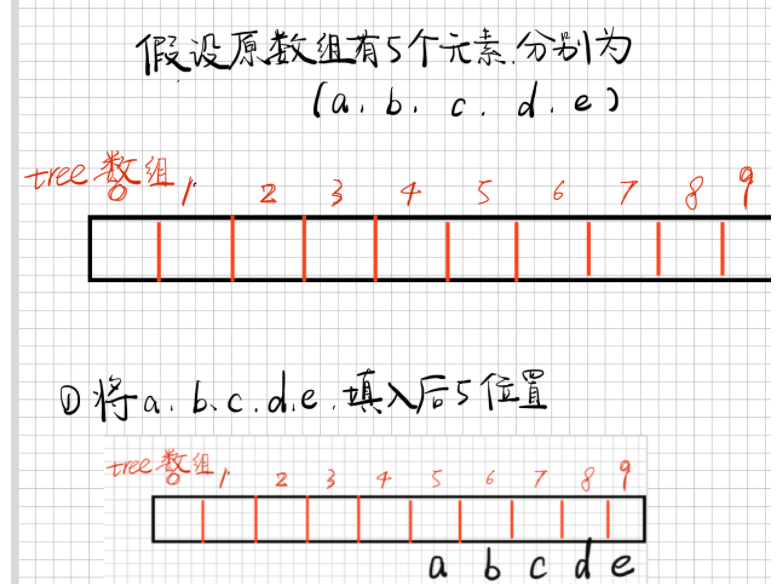 假设原数组有5个元素.分别为
(a. b. c. d. e)
tree数组
0 1 2 3 4 5 6 7 8 9
①将a. b. c. d. e. 填入后5位置
tree数组
0 1 2 3 4 5 6 7 8 9
a b c d e